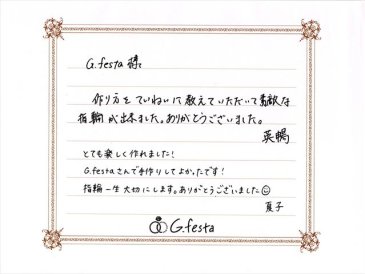 G.festa 様
作り方をていねいに教えていただいて素敵な
指輪が出来ました。ありがとうございました。
英暢
とても楽しく作れました!
G.festaさんで手作りしてよかったです!
指輪一生大切にします。ありがとうございました☺
夏子
G.festa